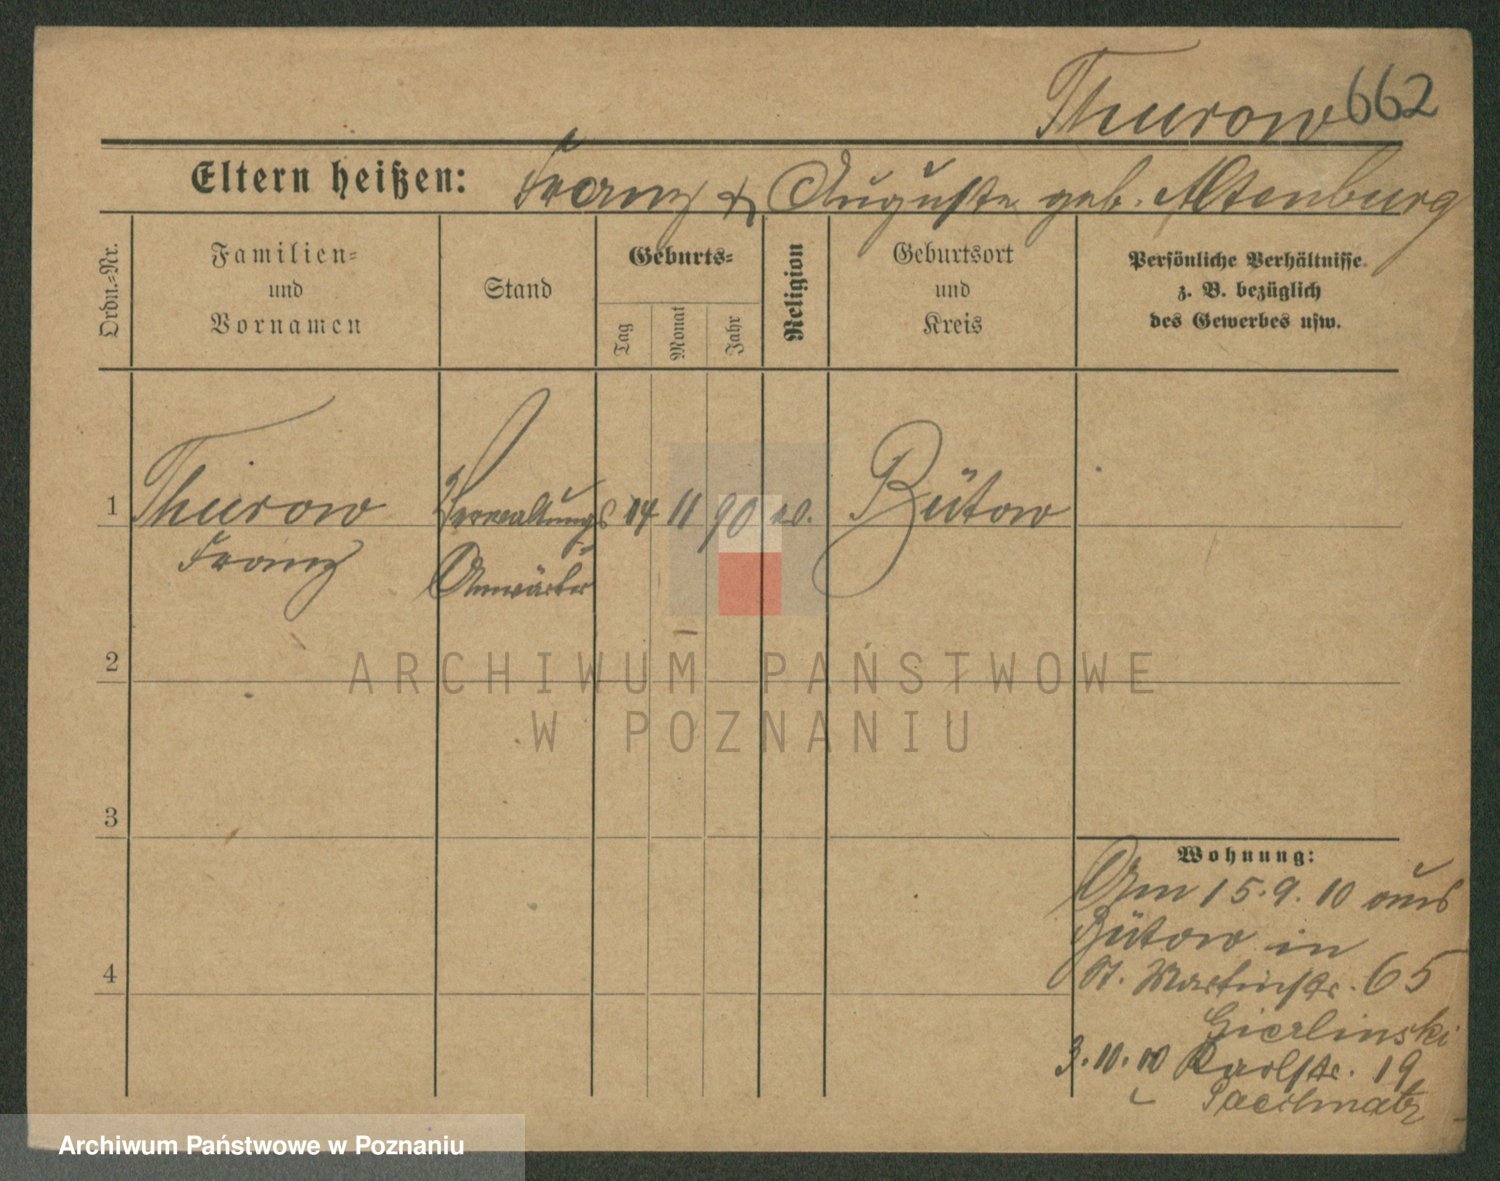 Thurow 662
Eltern heißen: Franz & Auguste geb. Altenburg
Ordn.-Nr.
Familien-
und
Vornamen
Stand
Geburts-
Tag
Monat
Jahr
Religion
Geburtsort
und
Kreis
Persönliche Verhältnisse
z. B. bezüglich
des Gewerbes usw.
1 Thurow Verwaltungs 14 11 90 ev. Bütow
Franz Anwärter
2
3
4
ARCHIWUM PAŃSTWOWE
W POZNANIU
Wohnung:
Am 15.9.10 aus
Bütow in
St. Martinstr. 65
Gierlinski
3.10.10 Karlstr. 19
Archiwum Państwowe w Poznaniu